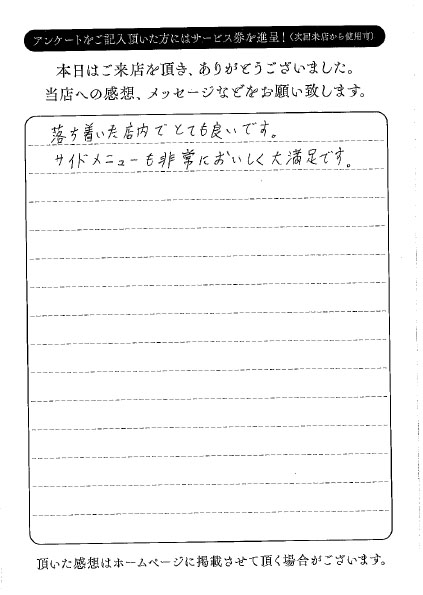 アンケートをご記入頂いた方にはサービス券を進呈！(次回来店から使用可)
本日はご来店を頂き、ありがとうございました。
当店への感想、メッセージなどをお願い致します。
落ち着いた店内でとても良いです。
サイドメニューも非常においしく大満足です。
頂いた感想はホームページに掲載させて頂く場合がございます。